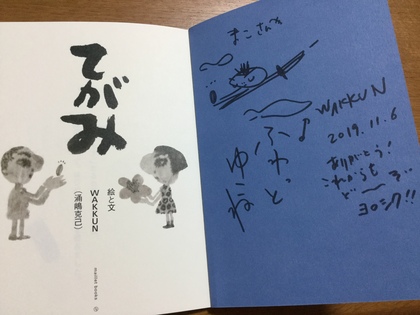 てがみ
絵と文
WAKKUN
（涌嶋克己）
まこさんへ
WAKKUN
2019.11.6
ありがとう！
これからも
ど〜ぞ
ヨロシク!!